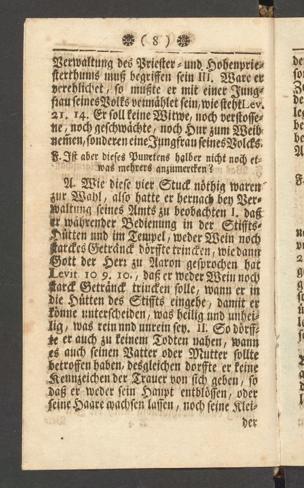 ( 8 )
Verwaltung des Priester- und Hohenprie-
sterthums muß begriffen sein III. Ware er
verehlichet, so müßte er mit einer Jung-
frau seines Volks vermählet sein, wie steht Lev.
21. 14. Er soll keine Witwe, noch verstosse-
ne, noch geschwächte, noch Hur zum Weib
nemen, sonderen eine Jungfrau seines Volcks.
F. Ist aber dieses Punctens halber nicht noch et-
was mehrers anzumercken?
A. Wie diese vier Stuck nöthig waren
zur Wahl, also hatte er hernach bey Ver-
waltung seines Amts zu beobachten I. daß
er währender Bedienung in der Stiffts-
Hütten und im Tempel, weder Wein noch
starckes Getränck dörffte trincken, wie dann
Gott der Herr zu Aaron gesprochen hat
Levit 10 9. 10., daß er weder Wein noch
starck Getränck trincken solle, wann er in
die Hütten des Stiffts eingehe, damit er
könne unterscheiden, was heilig und unhei-
lig, was rein und unrein sey. II. So dörff-
te er auch zu keinem Todten nahen, wann
es auch seinen Vatter oder Mutter sollte
betroffen haben, desgleichen dorffte er keine
Kennzeichen der Trauer von sich geben, so
daß er weder sein Haupt entblössen, oder
seine Haare wachsen lassen, noch seine Klei-
der